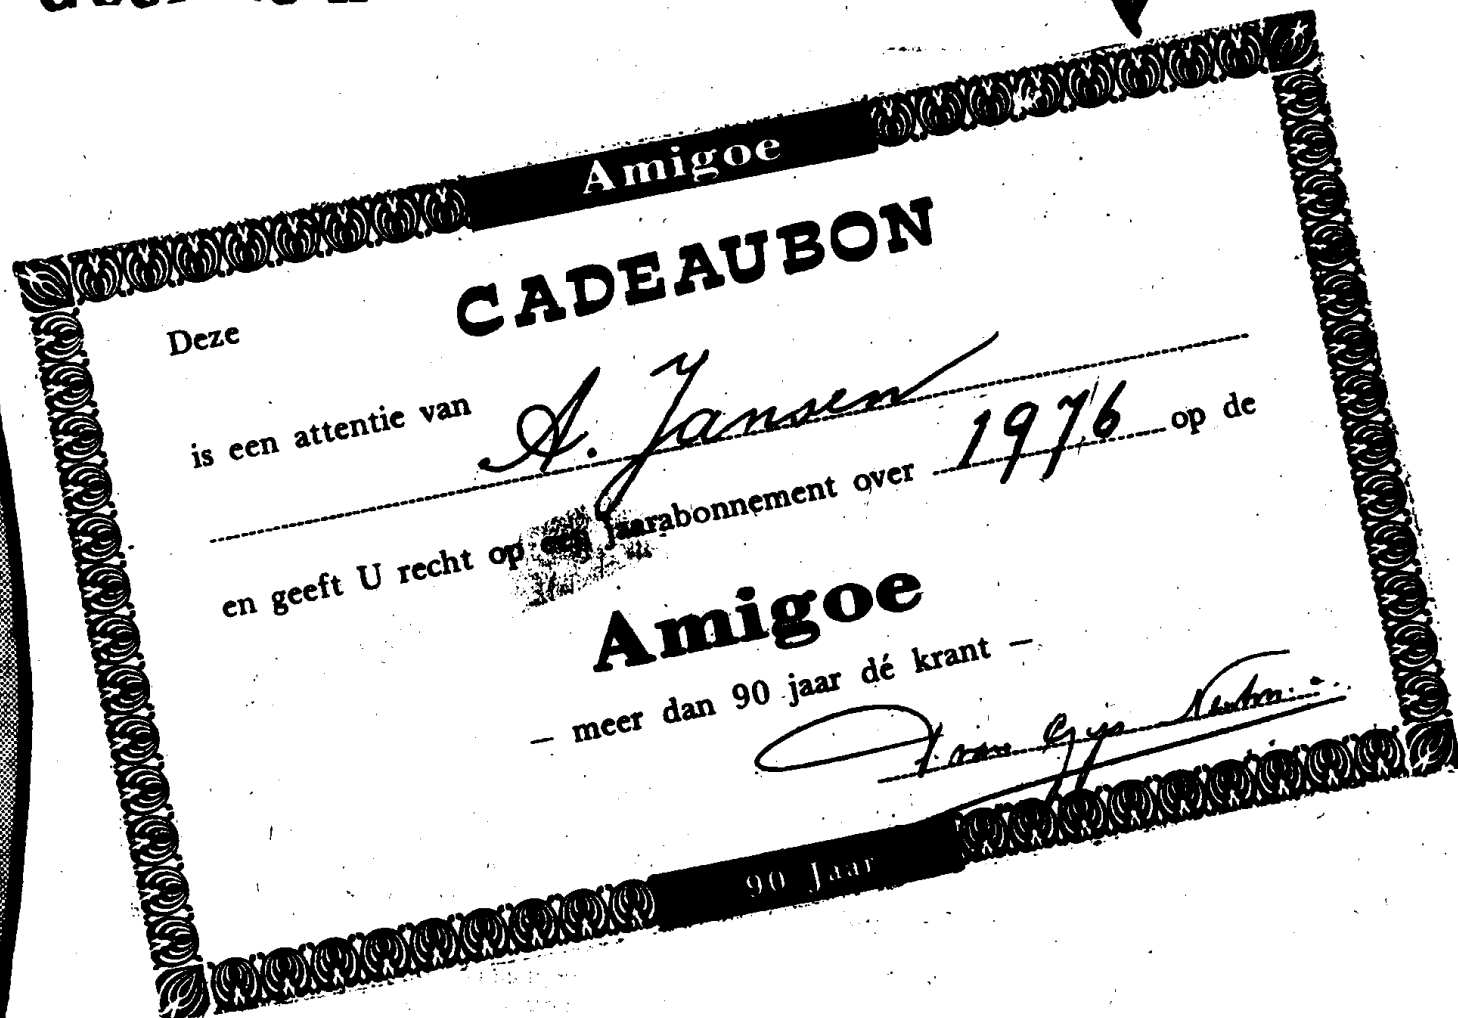 Amigoe
CADEAUBON
Deze
is een attentie van A. Jansen
en geeft U recht op een jaarabonnement over 1976 op de
Amigoe
– meer dan 90 jaar dé krant –
90 Jaar